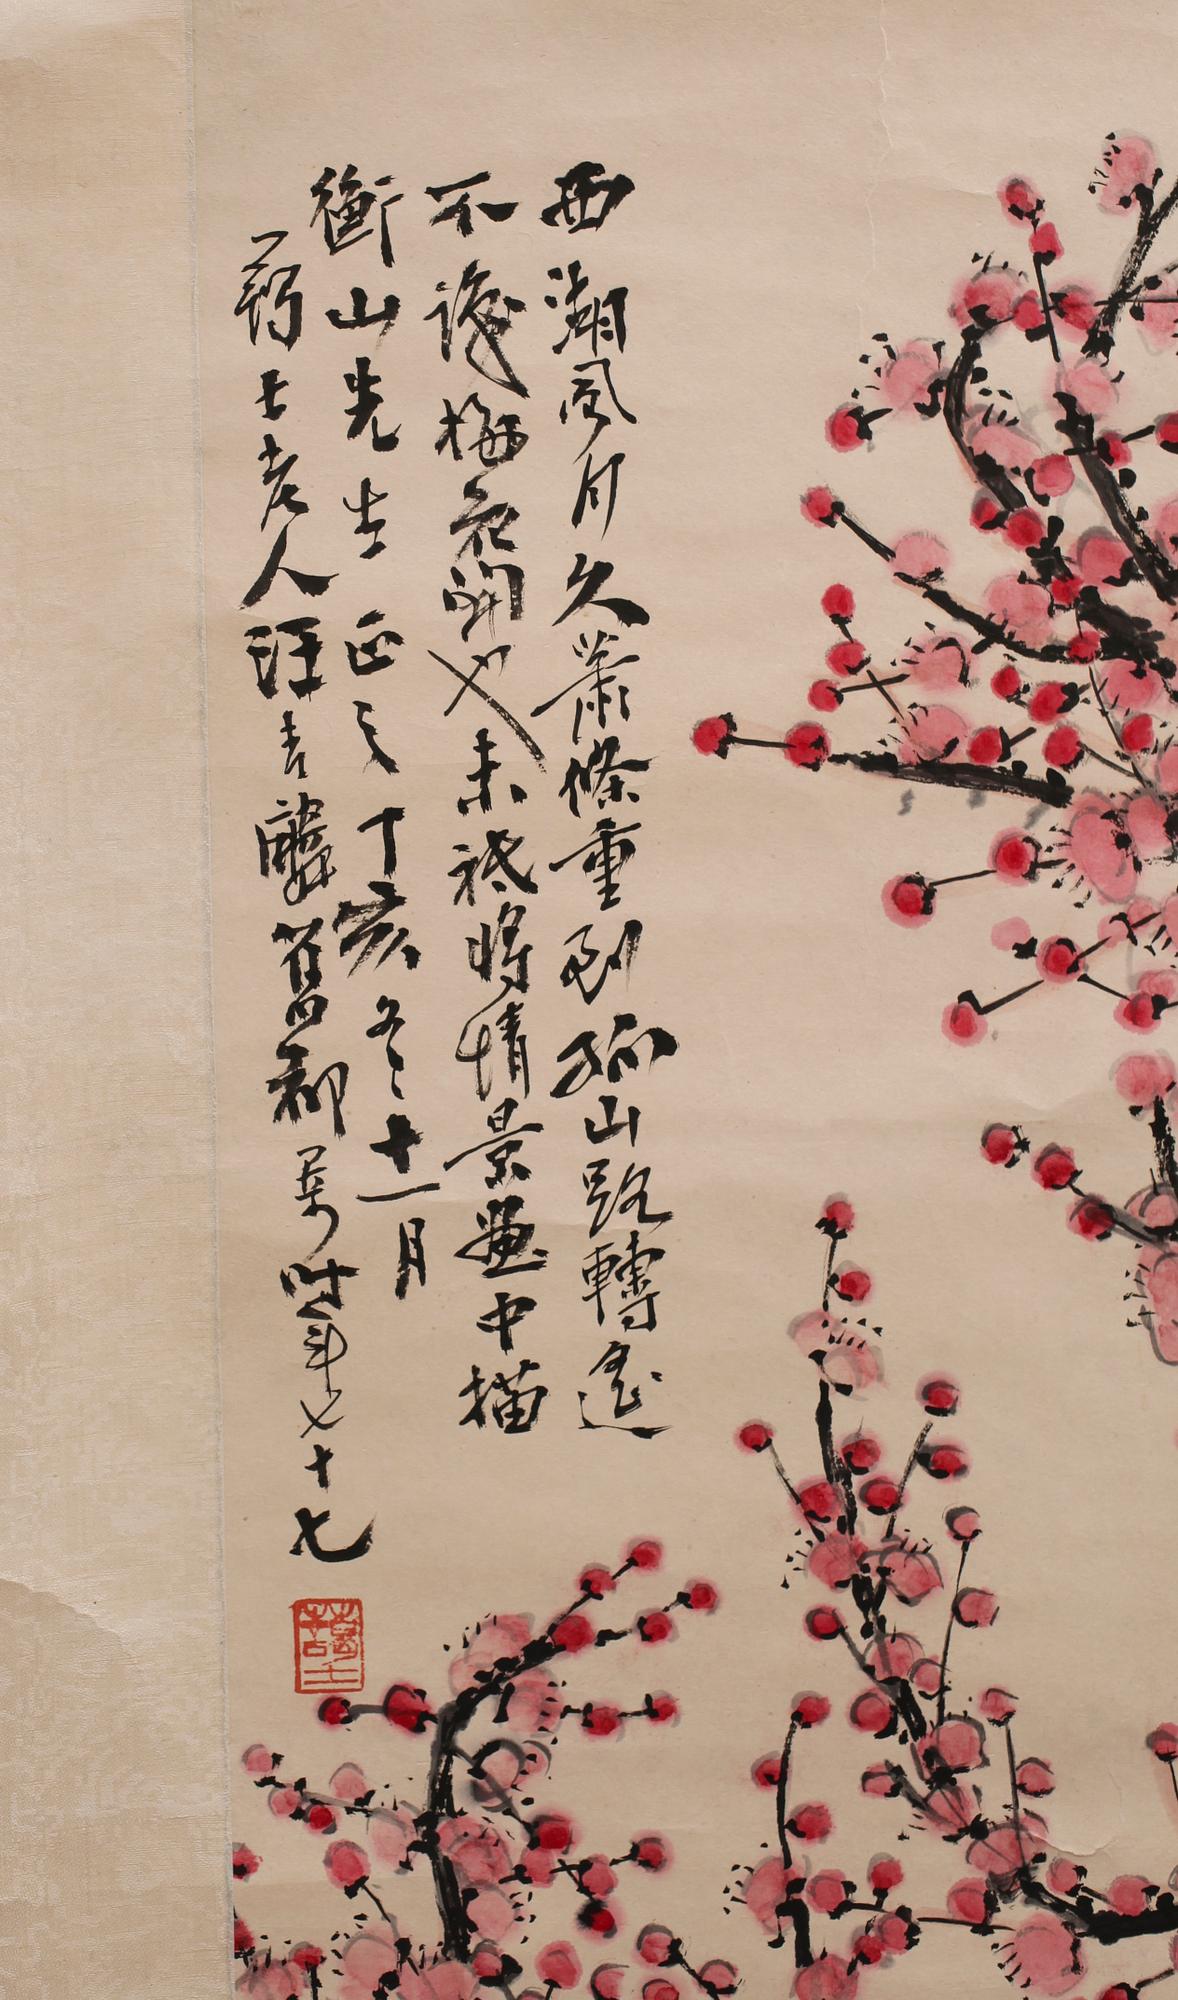 西湖風月久蕭條重到孤山路轉遙
不識梅花開也未祗將情景畫中描
衡山先生正之丁亥冬十一月
藹士老人汪吉麟舊都寫時年七十七
藹士